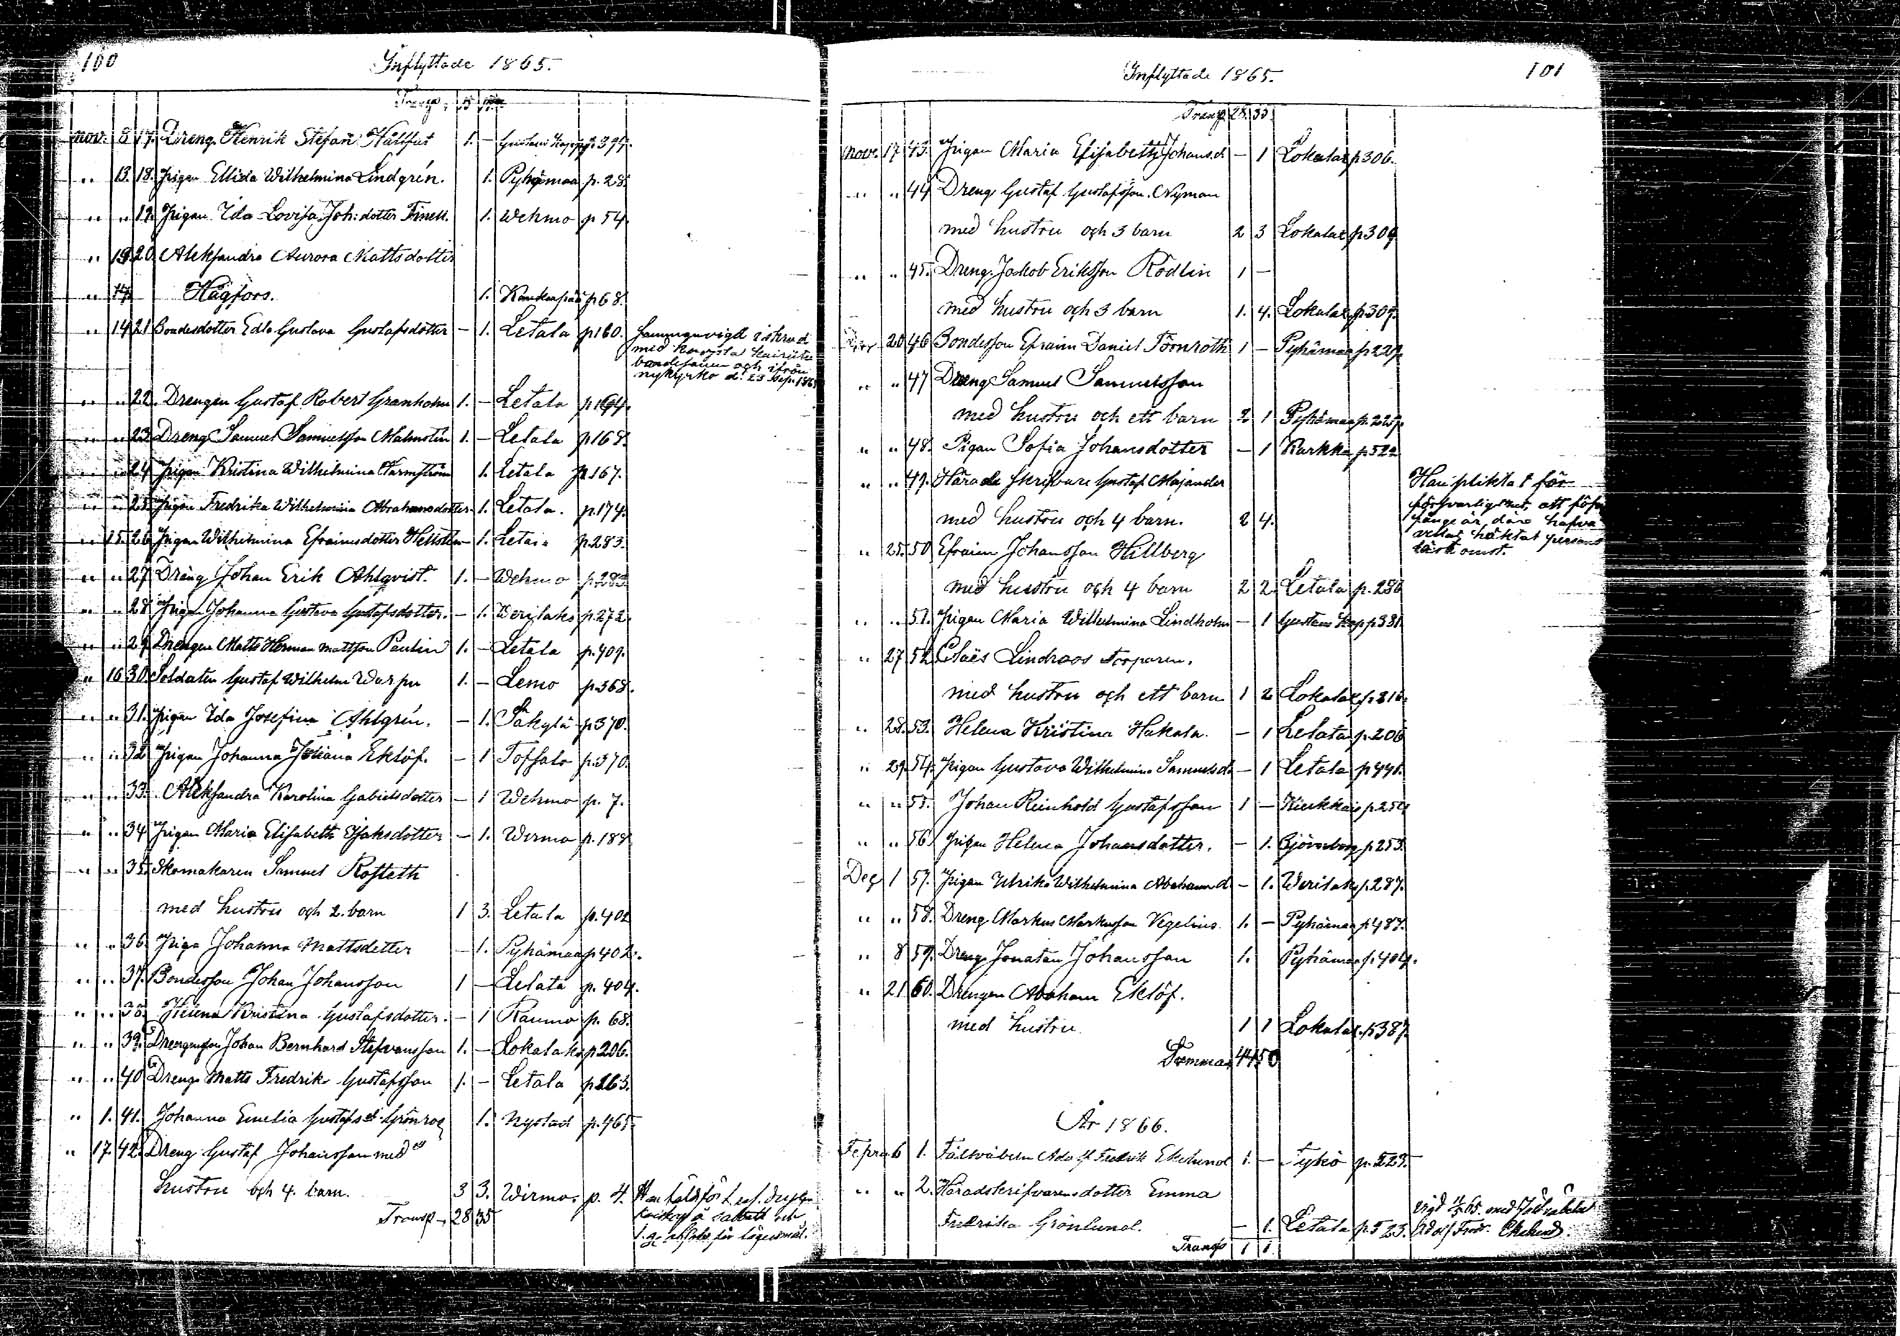 100
Inflyttade 1865.
Transp. 15
nov. 5 17. Dreng. Henrik Stefan 1. –
" 13. 18. Pigan Ellida Wilhelmina Lindgrén. 1. Pyhämaa p. 28.
" " 19. Pigan Ida Lovisa Joh: dotter Finell. 1. Wehmo p. 54.
" 20. Aleksandra Aurora Mattsdotter
" 14. Hägfors. 1. p 68.
" 14 21 Bondedotter Eda Gustava Gustafsdotter – 1. Letala p 160.
med
och ifrån
nykyrko d. 23 Sep. 1865
" " 22. Drengen Gustaf Robert Granholm 1. – Letala p 194.
" " 23. Dreng Samuel Samuelsson Malmstén 1. – Letala p 165.
" " 24. Pigan Kristina Wilhelmina 1. Letala p 167.
" " 25. Pigan Fredrika Wilhelmina Abrahamsdotter – 1. Letala. p. 174.
" 15. 26. Pigan Wilhelmina Efraimsdotter Hellstén – 1. Letala p. 283.
" " 27. Dräng Johan Erik Ahlqvist. 1. – Wehmo p. 282
" " 28. Pigan Johanna Gustava Gustafsdotter. – 1. p. 272.
" " 29. Drengen Matts Herman Mattsson Paulin 1. – Letala p. 409.
" 16 30. Soldaten Gustaf Wilhelm Warpu 1. – Lemo p. 368.
" " 31. Pigan Ida Josefina Ahlgrén. – 1. Säkylä p. 370.
" " 32. Pigan Johanna Juliana Eklöf. – 1 p. 370.
" " 33. Aleksandra Karolina Gabrielsdotter – 1 Wehmo p. 7.
" " 34. Pigan Maria Elisabeth Isaksdotter – 1. Wirmo p. 188
" " 35. Skomakaren Samuel Rosteth
med hustru och 2. barn 1 3. Letala p. 402
" " 36. Piga Johanna Mattsdotter – 1. Pyhämaa p 402.
" " 37. Bondesson Johan Johansson 1 – Letala p. 404.
" " 38. Helena Kristina Gustafsdotter. – 1 Raumo p. 68.
" " 39. Johan Bernhard Stefvansson 1. – Lokalaks p. 206.
" " 40. Dreng Matts Fredrik Gustafsson 1. – Letala p. 263.
" 1. 41. Johanna Emelia Gustafsd. Grönroos 1. Nystad p. 465
" 17. 42. Dreng Gustaf Johansson med
hustru och 4. barn. 3 3. Wirmo. p. 4.
Transp. 28 35
Inflyttade 1865.
101
Transp. 28 35
nov. 17 43. Pigan Maria Elisabeth Johans.d. – 1 Lokalax p 306.
" " 44 Dreng Gustaf Gustafsson Nyman
med hustru och 3 barn 2 3 Lokalax p 309
" " 45. Dreng. Jakob Eriksson Rödlin 1 –
med hustru och 3 barn 1. 4. Lokalax p 309.
20 46 Bondesson Efraim Daniel Törnroth 1 – Pyhämaa p 227.
" " 47 Dreng Samuel Samuelsson
med hustru och ett barn 2 1 Pyhämaa p. 227.
" " 48. Pigan Sofia Johansdotter – 1 p 522
" " 49. Härads Skrifvare Gustaf Majander
med hustru och 4 barn. 2 4.
Han pliktat för
att
hafva
häktat
" 25. 50 Efraim Johansson Hellberg
med hustru och 4 barn 2 2 Letala p. 286
" " 51. Pigan Maria Wilhelmina Lindholm – 1 p 331
" 27 52 Claës Lindroos Torparen.
med hustru och ett barn 1 2 Lokalax p. 316
" 28. 53. Helena Kristina Hakala. – 1 Letala p. 206
" 29. 54. Pigan Gustava Wilhelmina Samuelsd. – 1 Letala p 441.
" " 55. Johan Reinhold Gustafsson 1 – p 254
" " 56 Pigan Helena Johansdotter. – 1. Björneborg p. 253.
Dec 1 57. Pigan Ulrika Wilhelmina Abrahamsd. – 1. p. 287.
" " 58. Dreng Markus Markusson Vegelius. 1. – Pyhämaa p 487.
" 8 59. Dreng Jonatan Johansson 1. Pyhämaa p. 404.
" 21 60. Drengen Abraham Eklöf.
med hustru 1 1 Lokalax p 387.
Summa 44 50
År 1866.
6 1. Adolf Fredrik Ekelund 1. – p. 523.
" " 2. Häradskrifvarens dotter Emma
Fredrika Grönlund. – 1. Letala p 523.
Adolf Fredr. Ekelund.
Transp 1 1